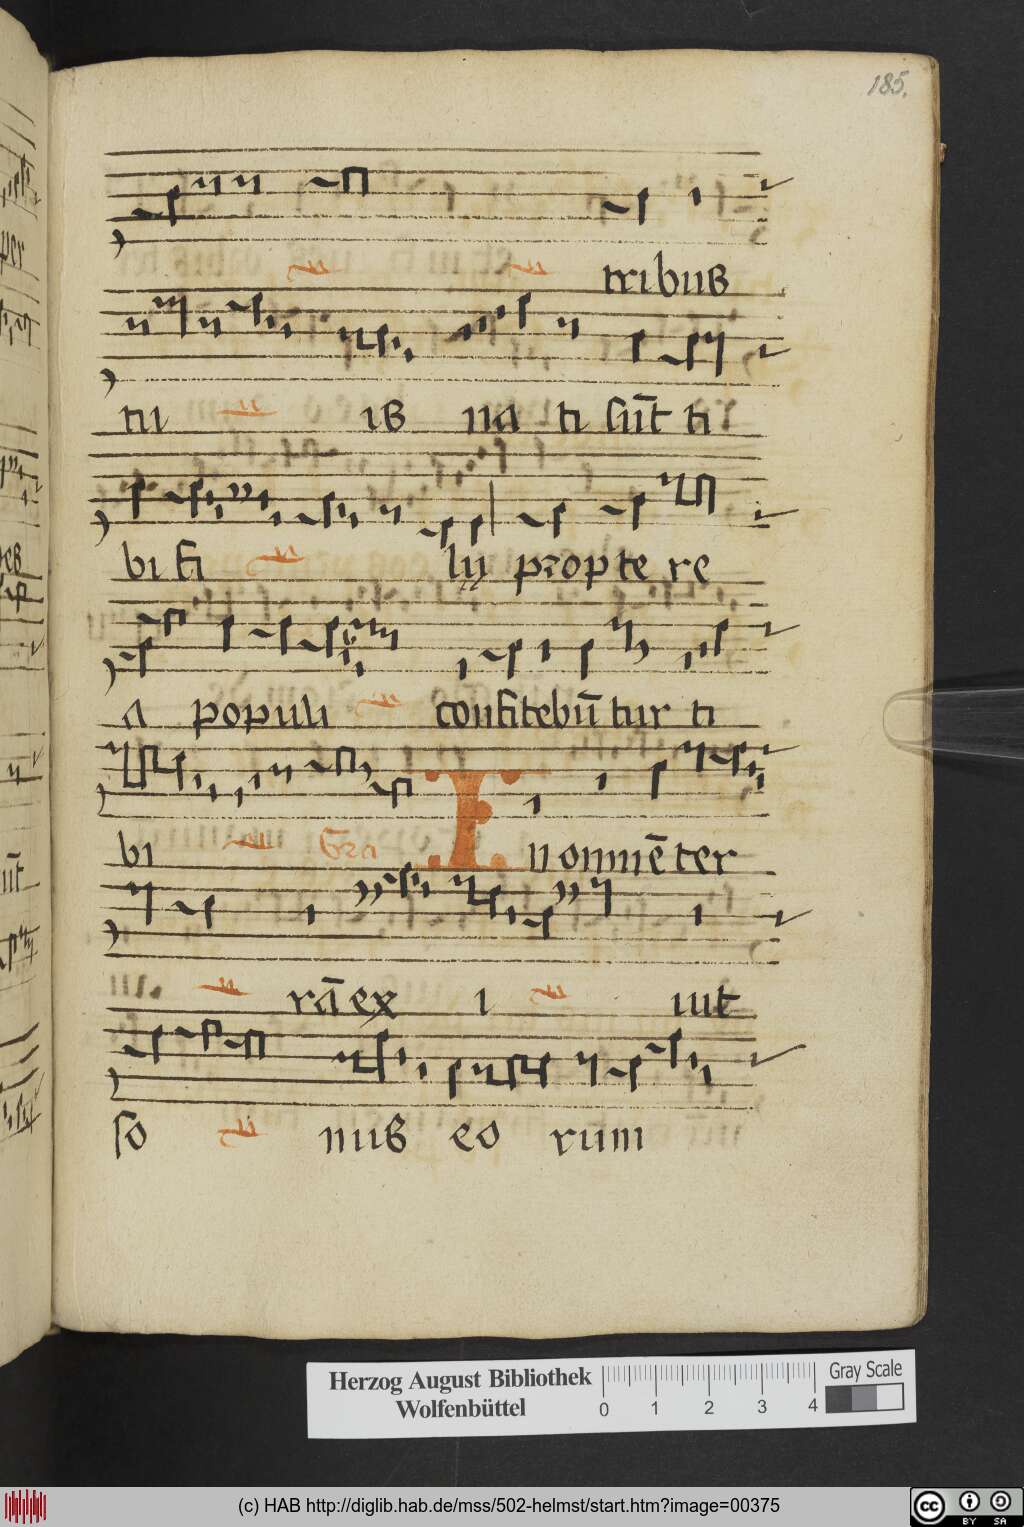 185.
tribus
tui is nati sūt ti
bi fi lij propte re
a populi confitebūtur ti
bi Gra In omnē ter
rā ex i iut
so nus eo rum
Herzog August Bibliothek
Wolfenbüttel
0 1 2 3 4
Gray Scale
(c) HAB http://diglib.hab.de/mss/502-helmst/start.htm?image=00375
cc BY SA